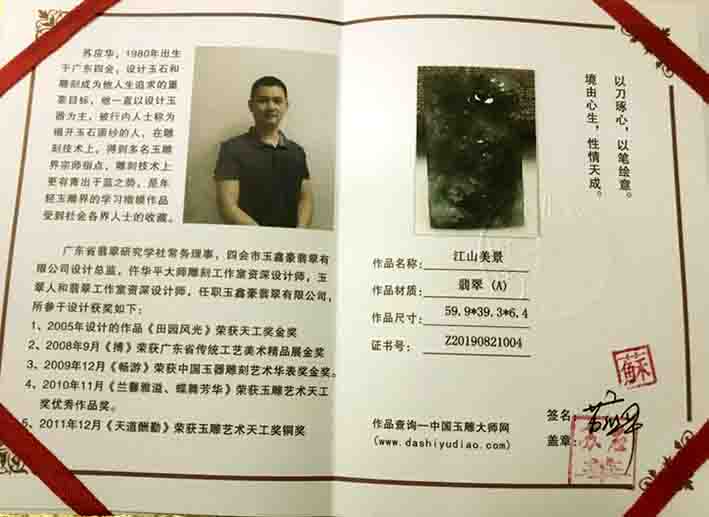 苏应华，1980年出生
于广东四会，设计玉石和
雕刻成为他人生追求的重
要目标，他一直以设计玉
器为主，被行内人士称为
揭开玉石面纱的人，在雕
刻技术上，得到多名玉雕
界宗师指点，雕刻技术上
更有青出于蓝之势，是年
轻玉雕界的学习楷模作品
受到社会各界人士的收藏。
广东省翡翠研究学社常务理事，四会市玉鑫豪翡翠有
限公司设计总监，仵华平大师雕刻工作室资深设计师，玉
翠人和翡翠工作室资深设计师，任职玉鑫豪翡翠有限公司，
所参于设计获奖如下：
1、2005年设计的作品《田园风光》荣获天工奖金奖
2、2008年9月《搏》荣获广东省传统工艺美术精品展金奖
3、2009年12月《畅游》荣获中国玉器雕刻艺术华表奖金奖。
4、2010年11月《兰馨雅溢、蝶舞芳华》荣获玉雕艺术天工
奖优秀作品奖。
5、2011年12月《天道酬勤》荣获玉雕艺术天工奖铜奖
以刀琢心，以笔绘意。
境由心生，性情天成。
作品名称：江山美景
作品材质：翡翠（A）
作品尺寸：59.9*39.3*6.4
证书号：Z20190821004
蘇
签名：
盖章：
作品查询—中国玉雕大师网
(www.dashiyudiao.com)